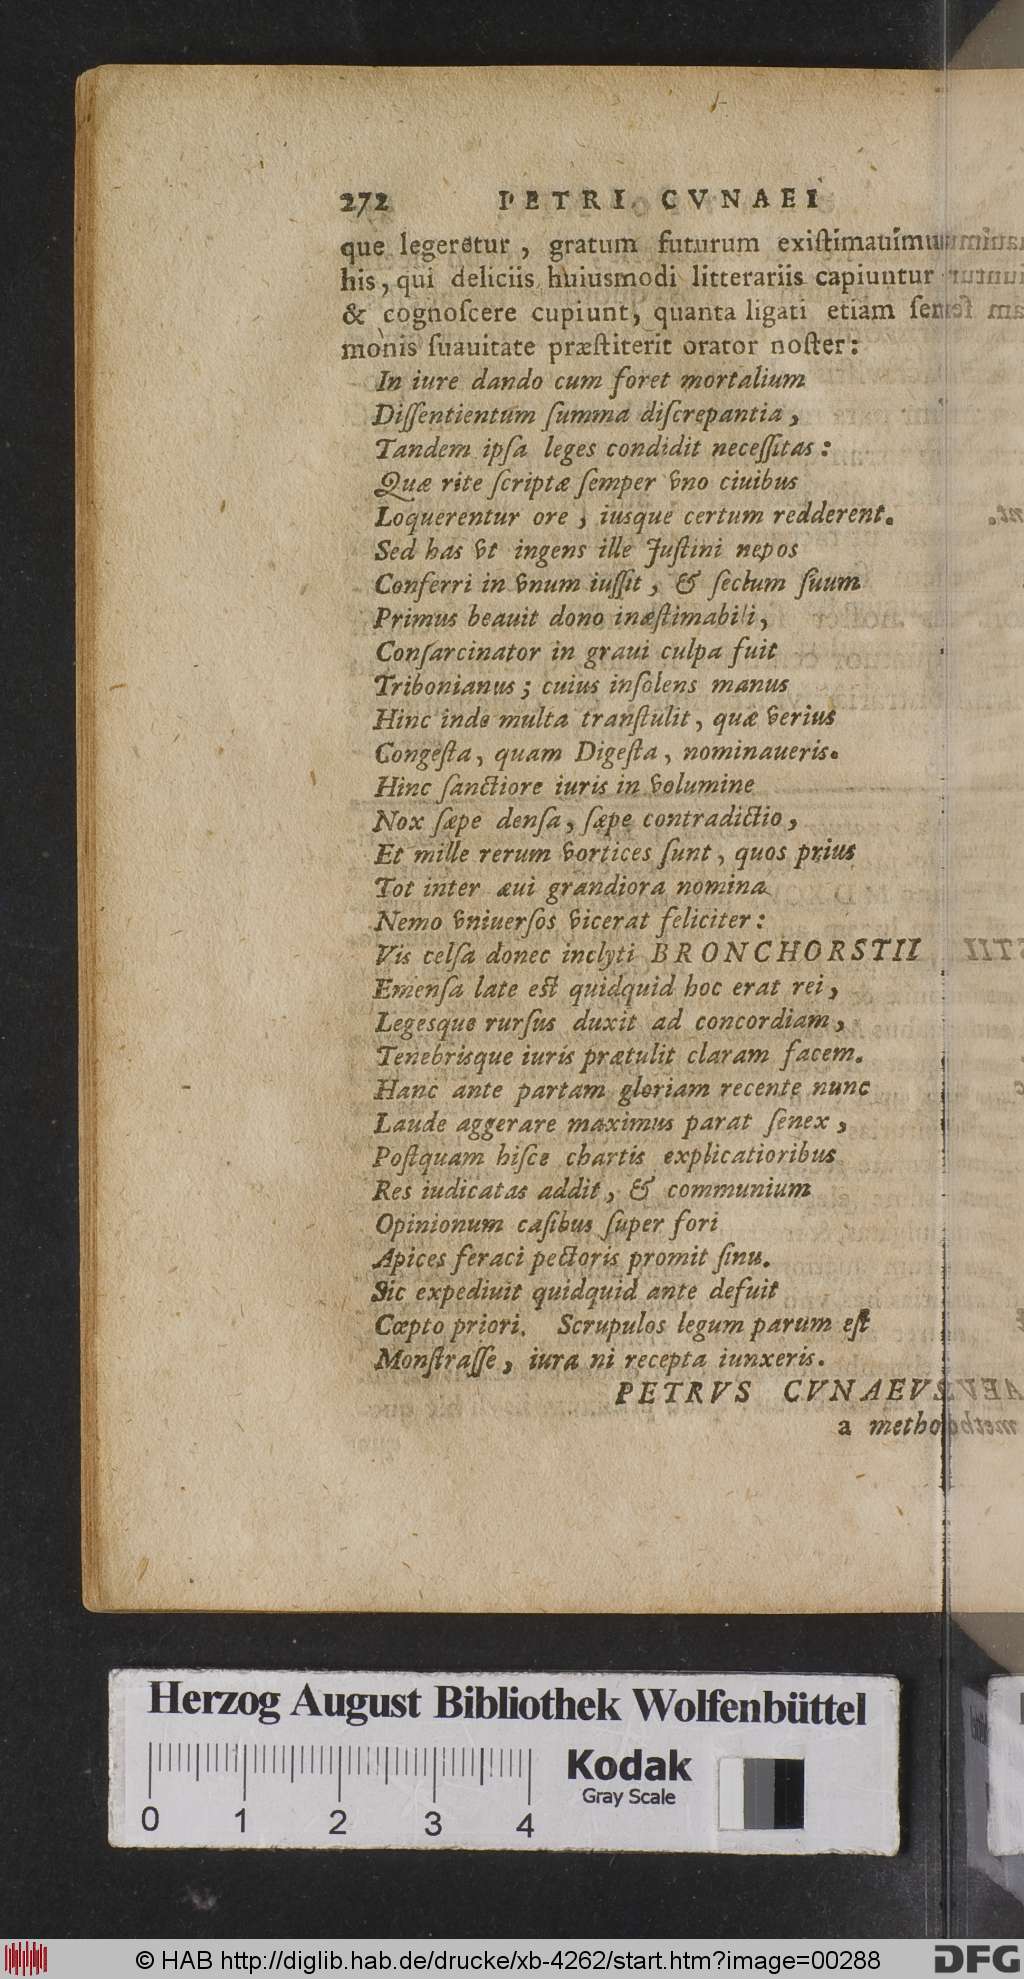 272 PETRI CVNAEI
que legeretur, gratum futurum exiſtimauimus
his, qui deliciis huiusmodi litterariis capiuntur
& cognoſcere cupiunt, quanta ligati etiam ſer
monis ſuauitate præſtiterit orator noſter:
In iure dando cum foret mortalium
Diſſentientum ſumma diſcrepantia,
Tandem ipſa leges condidit neceſſitas:
Quæ rite ſcriptæ ſemper vno ciuibus
Loquerentur ore, iusque certum redderent.
Sed has vt ingens ille Juſtini nepos
Conferri in vnum iuſſit, & ſeclum ſuum
Primus beauit dono inæſtimabili,
Conſarcinator in graui culpa fuit
Tribonianus; cuius inſolens manus
Hinc inde multa tranſtulit, quæ verius
Congeſta, quam Digeſta, nominaueris.
Hinc ſanctiore iuris in volumine
Nox ſæpe denſa, ſæpe contradictio,
Et mille rerum vortices ſunt, quos prius
Tot inter æui grandiora nomina
Nemo vniuerſos vicerat feliciter:
Vis celſa donec inclyti BRONCHORSTII
Emenſa late eſt quidquid hoc erat rei,
Legesque rurſus duxit ad concordiam,
Tenebrisque iuris prætulit claram facem.
Hanc ante partam gloriam recente nunc
Laude aggerare maximus parat ſenex,
Poſtquam hiſce chartis explicatioribus
Res iudicatas addit, & communium
Opinionum caſibus ſuper fori
Apices feraci pectoris promit ſinu.
Sic expediuit quidquid ante defuit
Cœpto priori. Scrupulos legum parum eſt
Monſtraſſe, iura ni recepta iunxeris.
PETRVS CVNAEVS
a metho
Herzog August Bibliothek Wolfenbüttel
Kodak
Gray Scale
0 1 2 3 4
© HAB http://diglib.hab.de/drucke/xb-4262/start.htm?image=00288
DFG